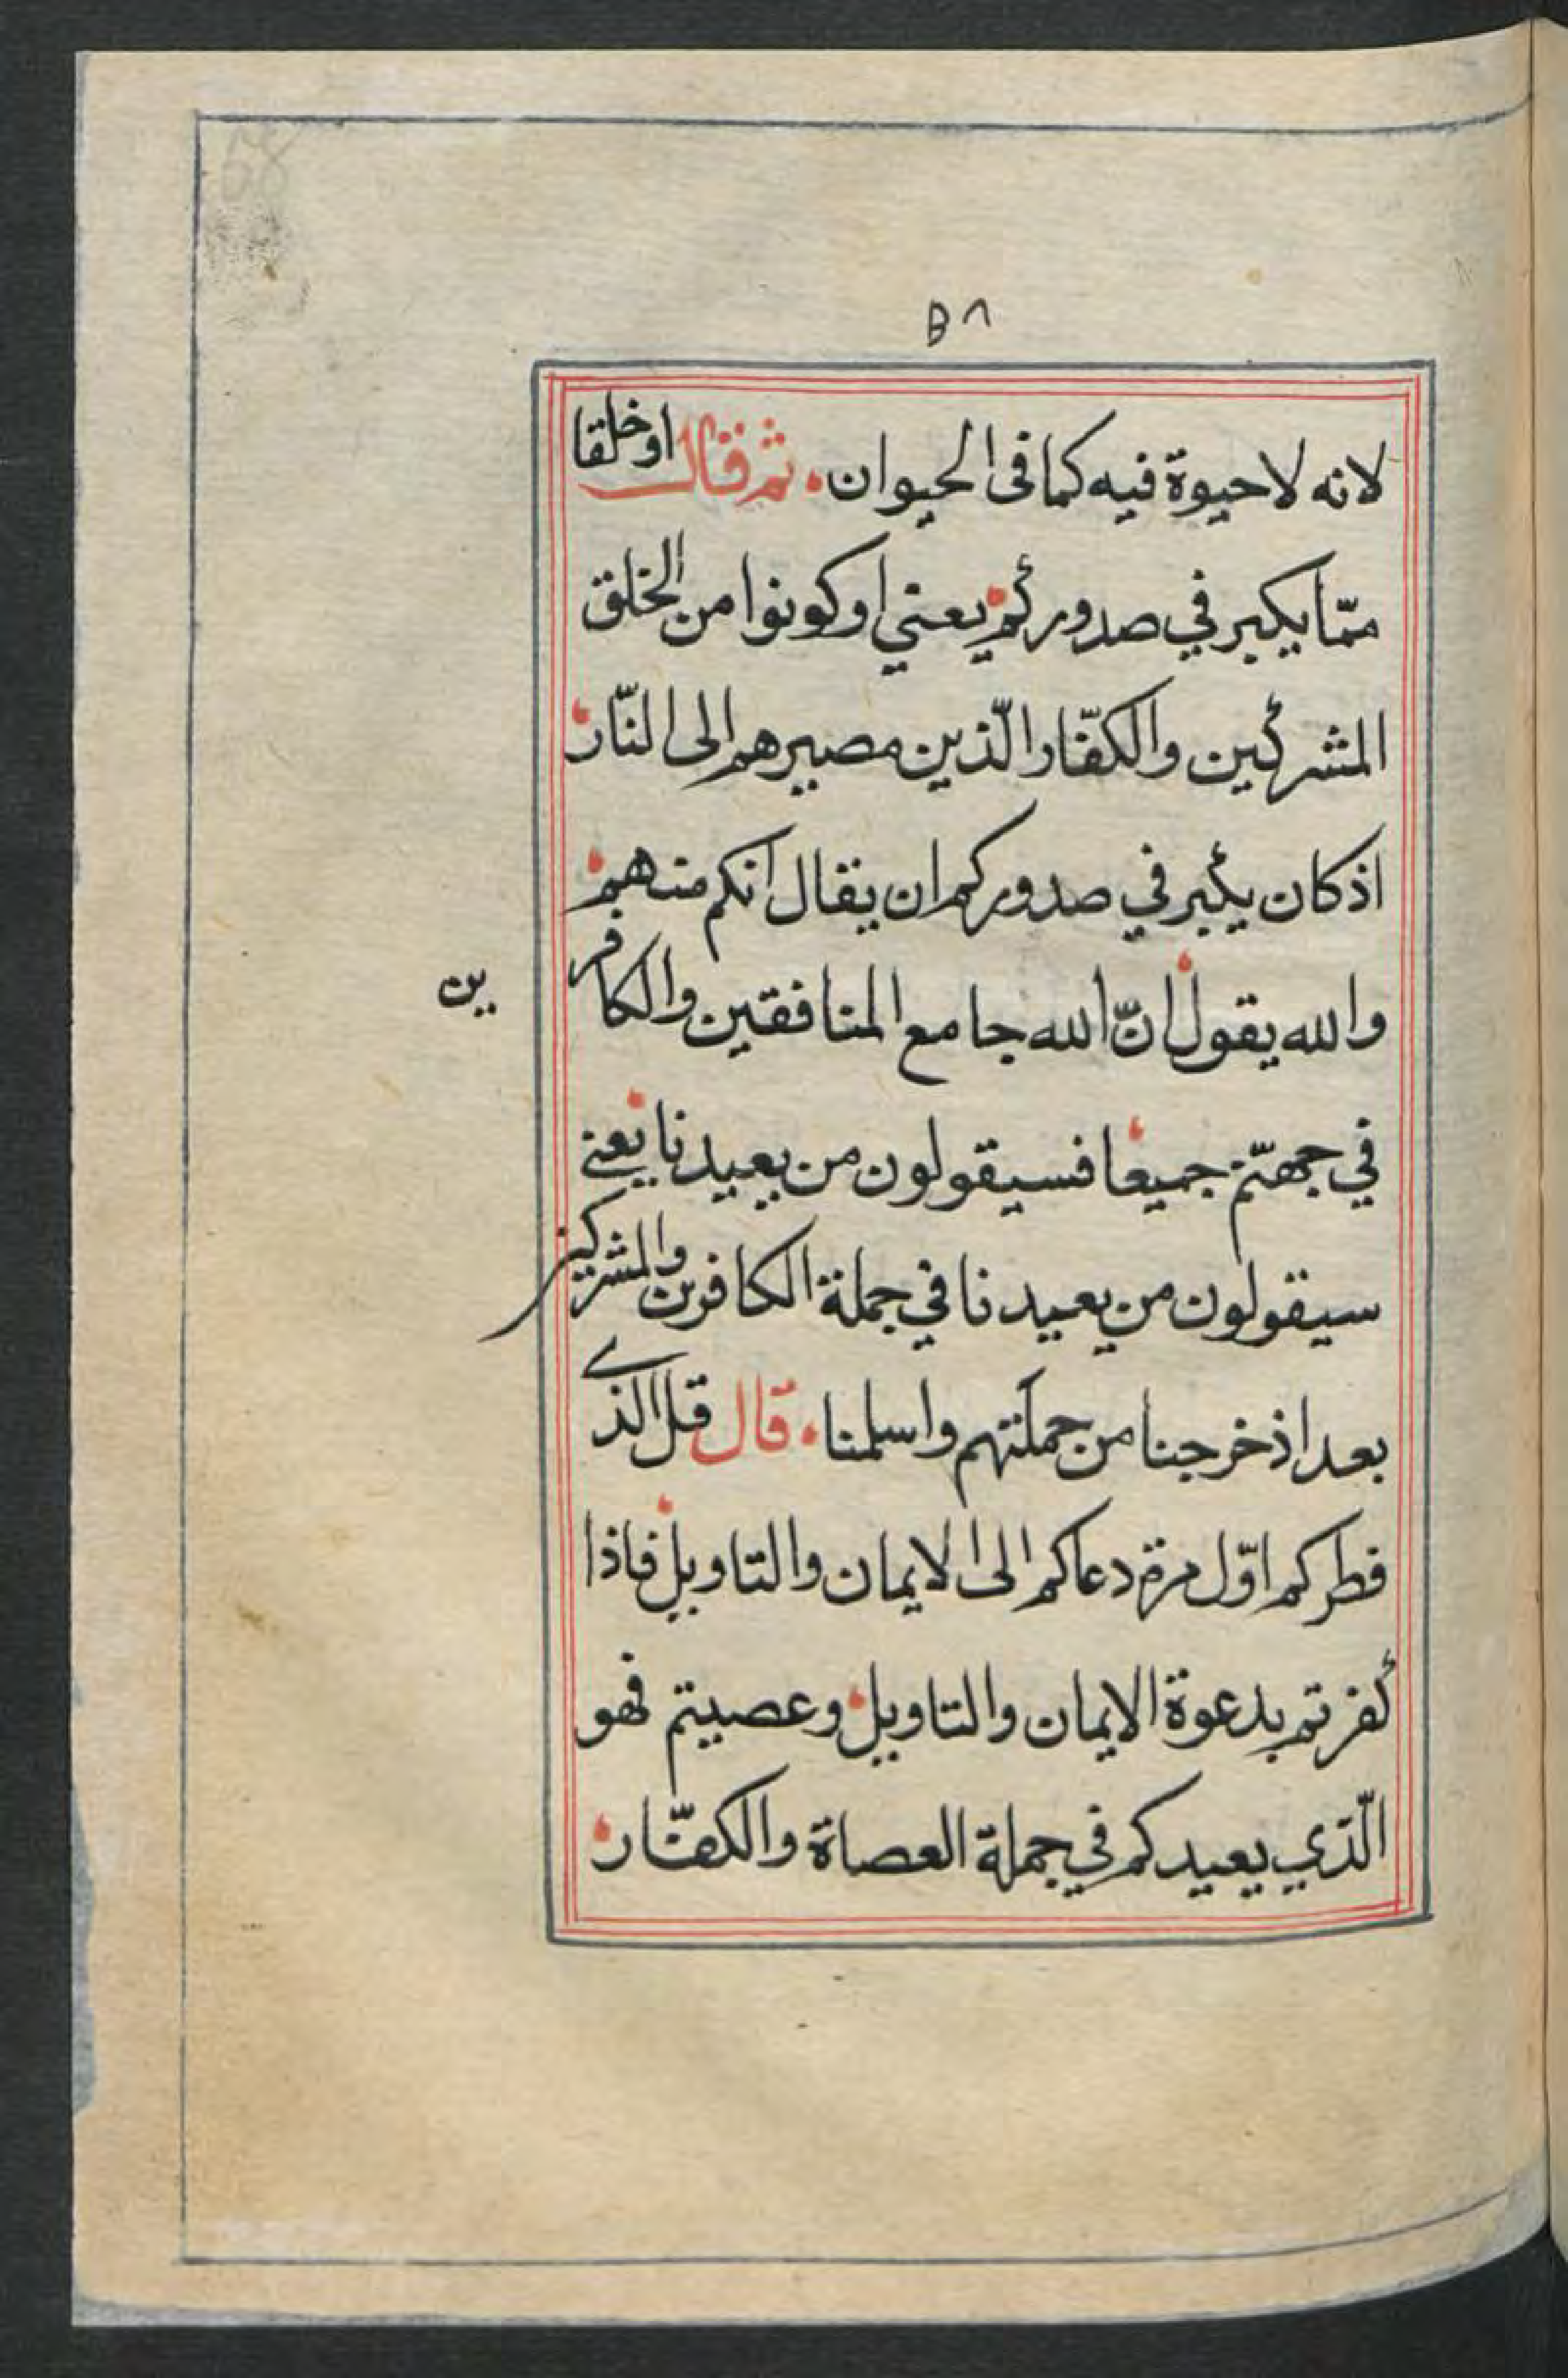 ٥٨
لانه لا حيوة فيه كما فى الحيوان. ثم قال اوخلقا
ممّا يكبر في صدوركم يعني او كونوا من الخلق
المشركين والكفّار الّذين مصيرهم الى النّار
اذ كان يكبر في صدوركم ان يقال انكم منهم
والله يقول انّ الله جامع المنافقين والكافرين
في جهنّم جميعا فسيقولون من يعيدنا يعني
سيقولون من يعيدنا في جملة الكافرين والمشركين
بعد اذ خرجنا من جملتهم واسلمنا. قال قل الذي
فطركم اوّل مرة دعاكم الى الايمان والتاويل فاذا
كفرتم بدعوة الايمان والتاويل وعصيتم فهو
الّذي يعيدكم في جملة العصاة والكفّار